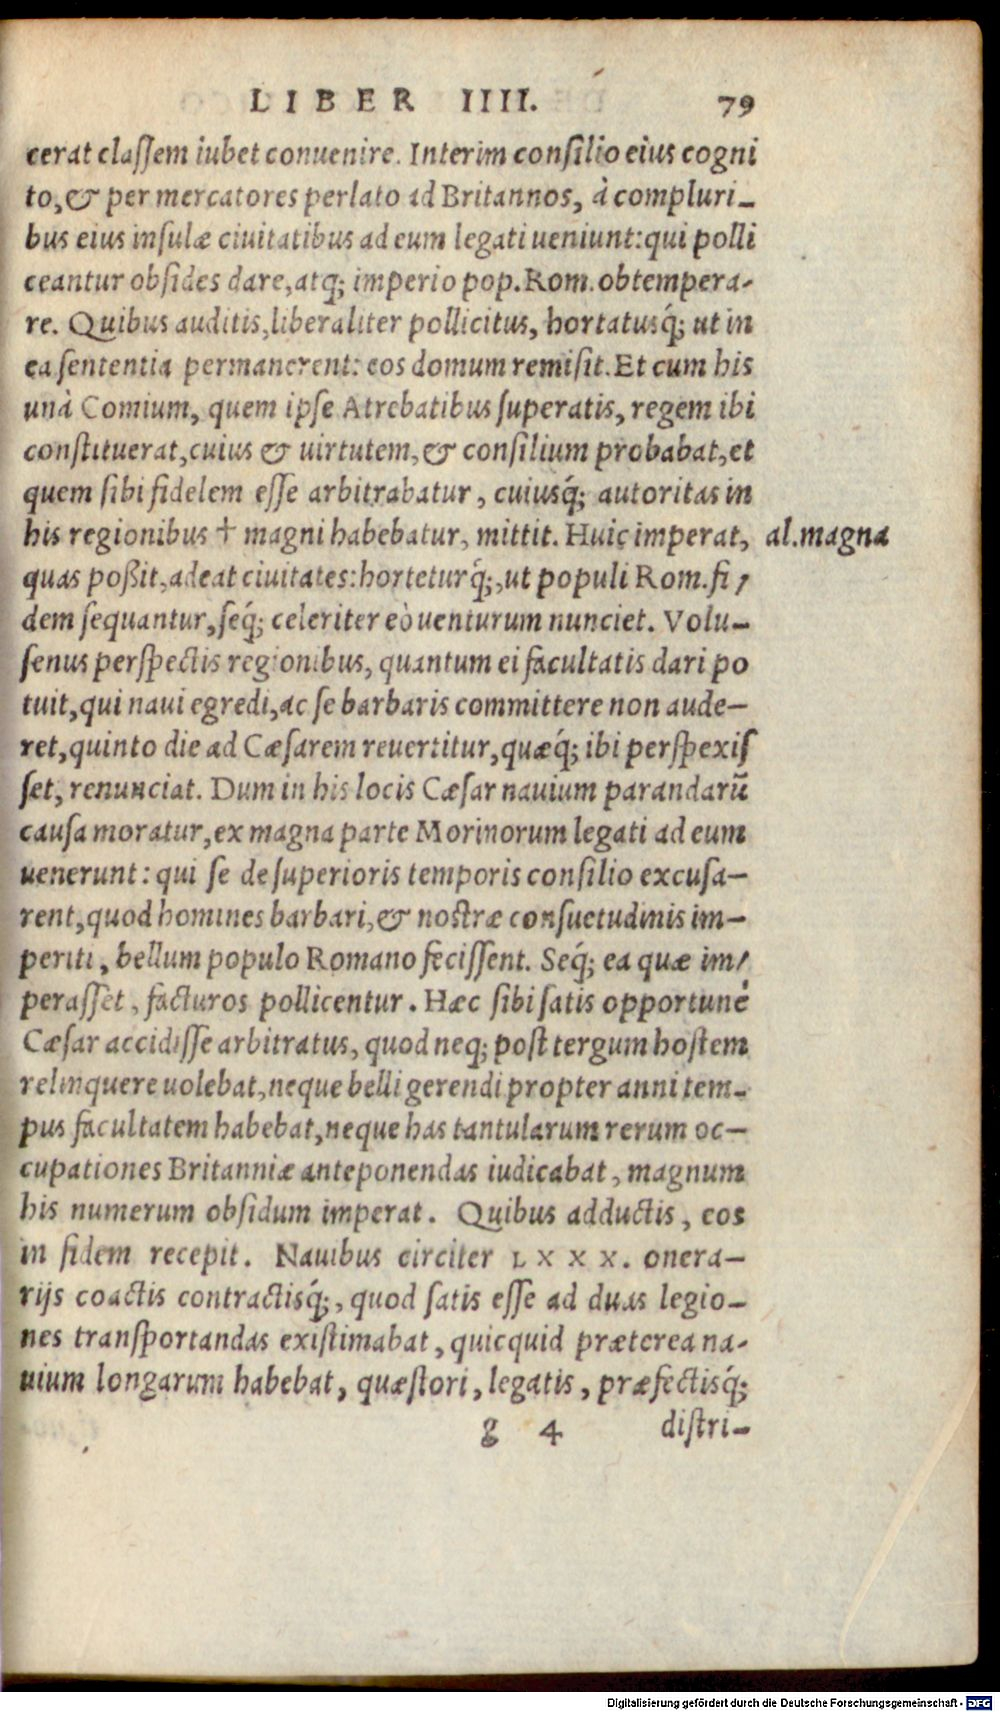 LIBER IIII. 79
cerat claſſem iubet conuenire. Interim conſilio eius cogni
to, & per mercatores perlato ad Britannos, à compluri-
bus eius inſulæ ciuitatibus ad eum legati ueniunt: qui polli
ceantur obſides dare, atq; imperio pop. Rom. obtempera-
re. Quibus auditis, liberaliter pollicitus, hortatusq́; ut in
ea ſententia permanerent: eos domum remiſit. Et cum his
unà Comium, quem ipſe Atrebatibus ſuperatis, regem ibi
conſtituerat, cuius & uirtutem, & conſilium probabat, et
quem ſibi fidelem eſſe arbitrabatur, cuiusq́; autoritas in
his regionibus † magni habebatur, mittit. Huic imperat, al. magna
quas poßit, adeat ciuitates: horteturq́;, ut populi Rom. fi-
dem ſequantur, ſeq́; celeriter eò uenturum nunciet. Volu-
ſenus perſpectis regionibus, quantum ei facultatis dari po
tuit, qui naui egredi, ac ſe barbaris committere non aude-
ret, quinto die ad Cæſarem reuertitur, quæq́; ibi perſpexiſ
ſet, renunciat. Dum in his locis Cæſar nauium parandarū
cauſa moratur, ex magna parte Morinorum legati ad eum
uenerunt: qui ſe de ſuperioris temporis conſilio excuſa-
rent, quod homines barbari, & noſtræ conſuetudinis im-
periti, bellum populo Romano feciſſent. Seq́; ea quæ im-
peraſſet, facturos pollicentur. Hæc ſibi ſatis opportunè
Cæſar accidiſſe arbitratus, quod neq; poſt tergum hoſtem
relinquere uolebat, neque belli gerendi propter anni tem-
pus facultatem habebat, neque has tantularum rerum oc-
cupationes Britanniæ anteponendas iudicabat, magnum
his numerum obſidum imperat. Quibus adductis, eos
in fidem recepit. Nauibus circiter LXXX. onera-
rijs coactis contractisq́;, quod ſatis eſſe ad duas legio-
nes tranſportandas exiſtimabat, quicquid præterea na-
uium longarum habebat, quæſtori, legatis, præfectisq́;
g 4 diſtri-
Digitalisierung gefördert durch die Deutsche Forschungsgemeinschaft - DFG